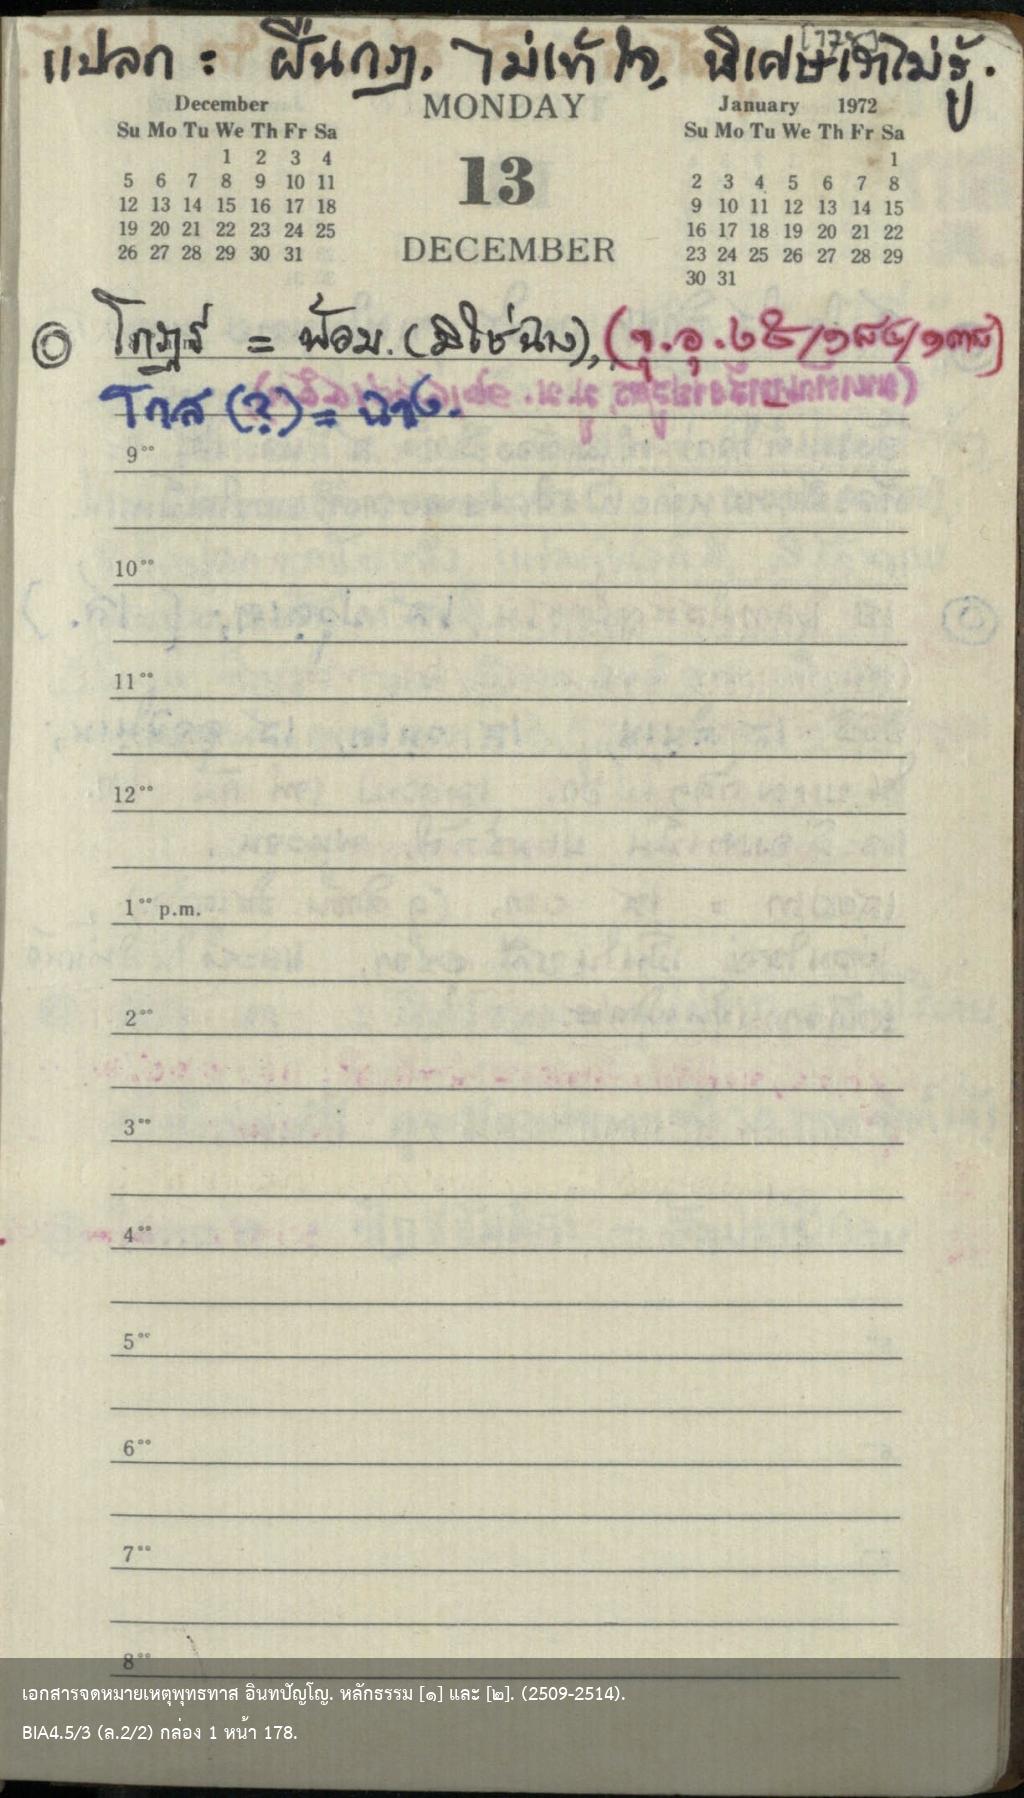 [178]
แปลก : ฝืนกฎ, ไม่เข้าใจ, พิเศษที่ไม่รู้.
December
Su Mo Tu We Th Fr Sa
1 2 3 4
5 6 7 8 9 10 11
12 13 14 15 16 17 18
19 20 21 22 23 24 25
26 27 28 29 30 31
MONDAY
13
DECEMBER
January 1972
Su Mo Tu We Th Fr Sa
1
2 3 4 5 6 7 8
9 10 11 12 13 14 15
16 17 18 19 20 21 22
23 24 25 26 27 28 29
30 31
โกฏฐํ = พ้อม. (มิใช่ฉาง),
โกส (?) = ฉาง.
9°°
10°°
11°°
12°°
1°° p.m.
2°°
3°°
4°°
5°°
6°°
7°°
8°°
เอกสารจดหมายเหตุพุทธทาส อินทปัญโญ. หลักธรรม [๑] และ [๒]. (2509-2514).
BIA4.5/3 (ล.2/2) กล่อง 1 หน้า 178.